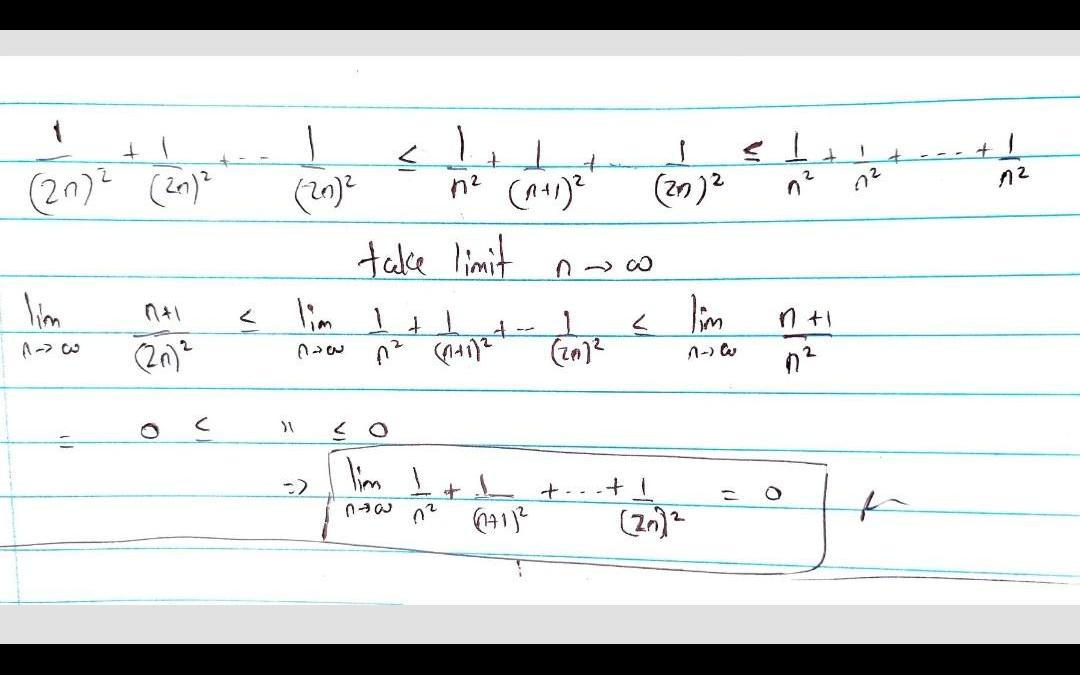 1/(2n)² + 1/(2n)² + -- 1/(2n)² ≤ 1/n² + 1/(n+1)² + -- 1/(2n)² ≤ 1/n² + 1/n² + ---- + 1/n²
take limit n → ∞
lim n→∞ n+1/(2n)² ≤ lim n→∞ 1/n² + 1/(n+1)² + -- 1/(2n)² ≤ lim n→∞ n+1/n²
= 0 ≤ " ≤ 0
=> lim n→∞ 1/n² + 1/(n+1)² + ... + 1/(2n)² = 0 ←